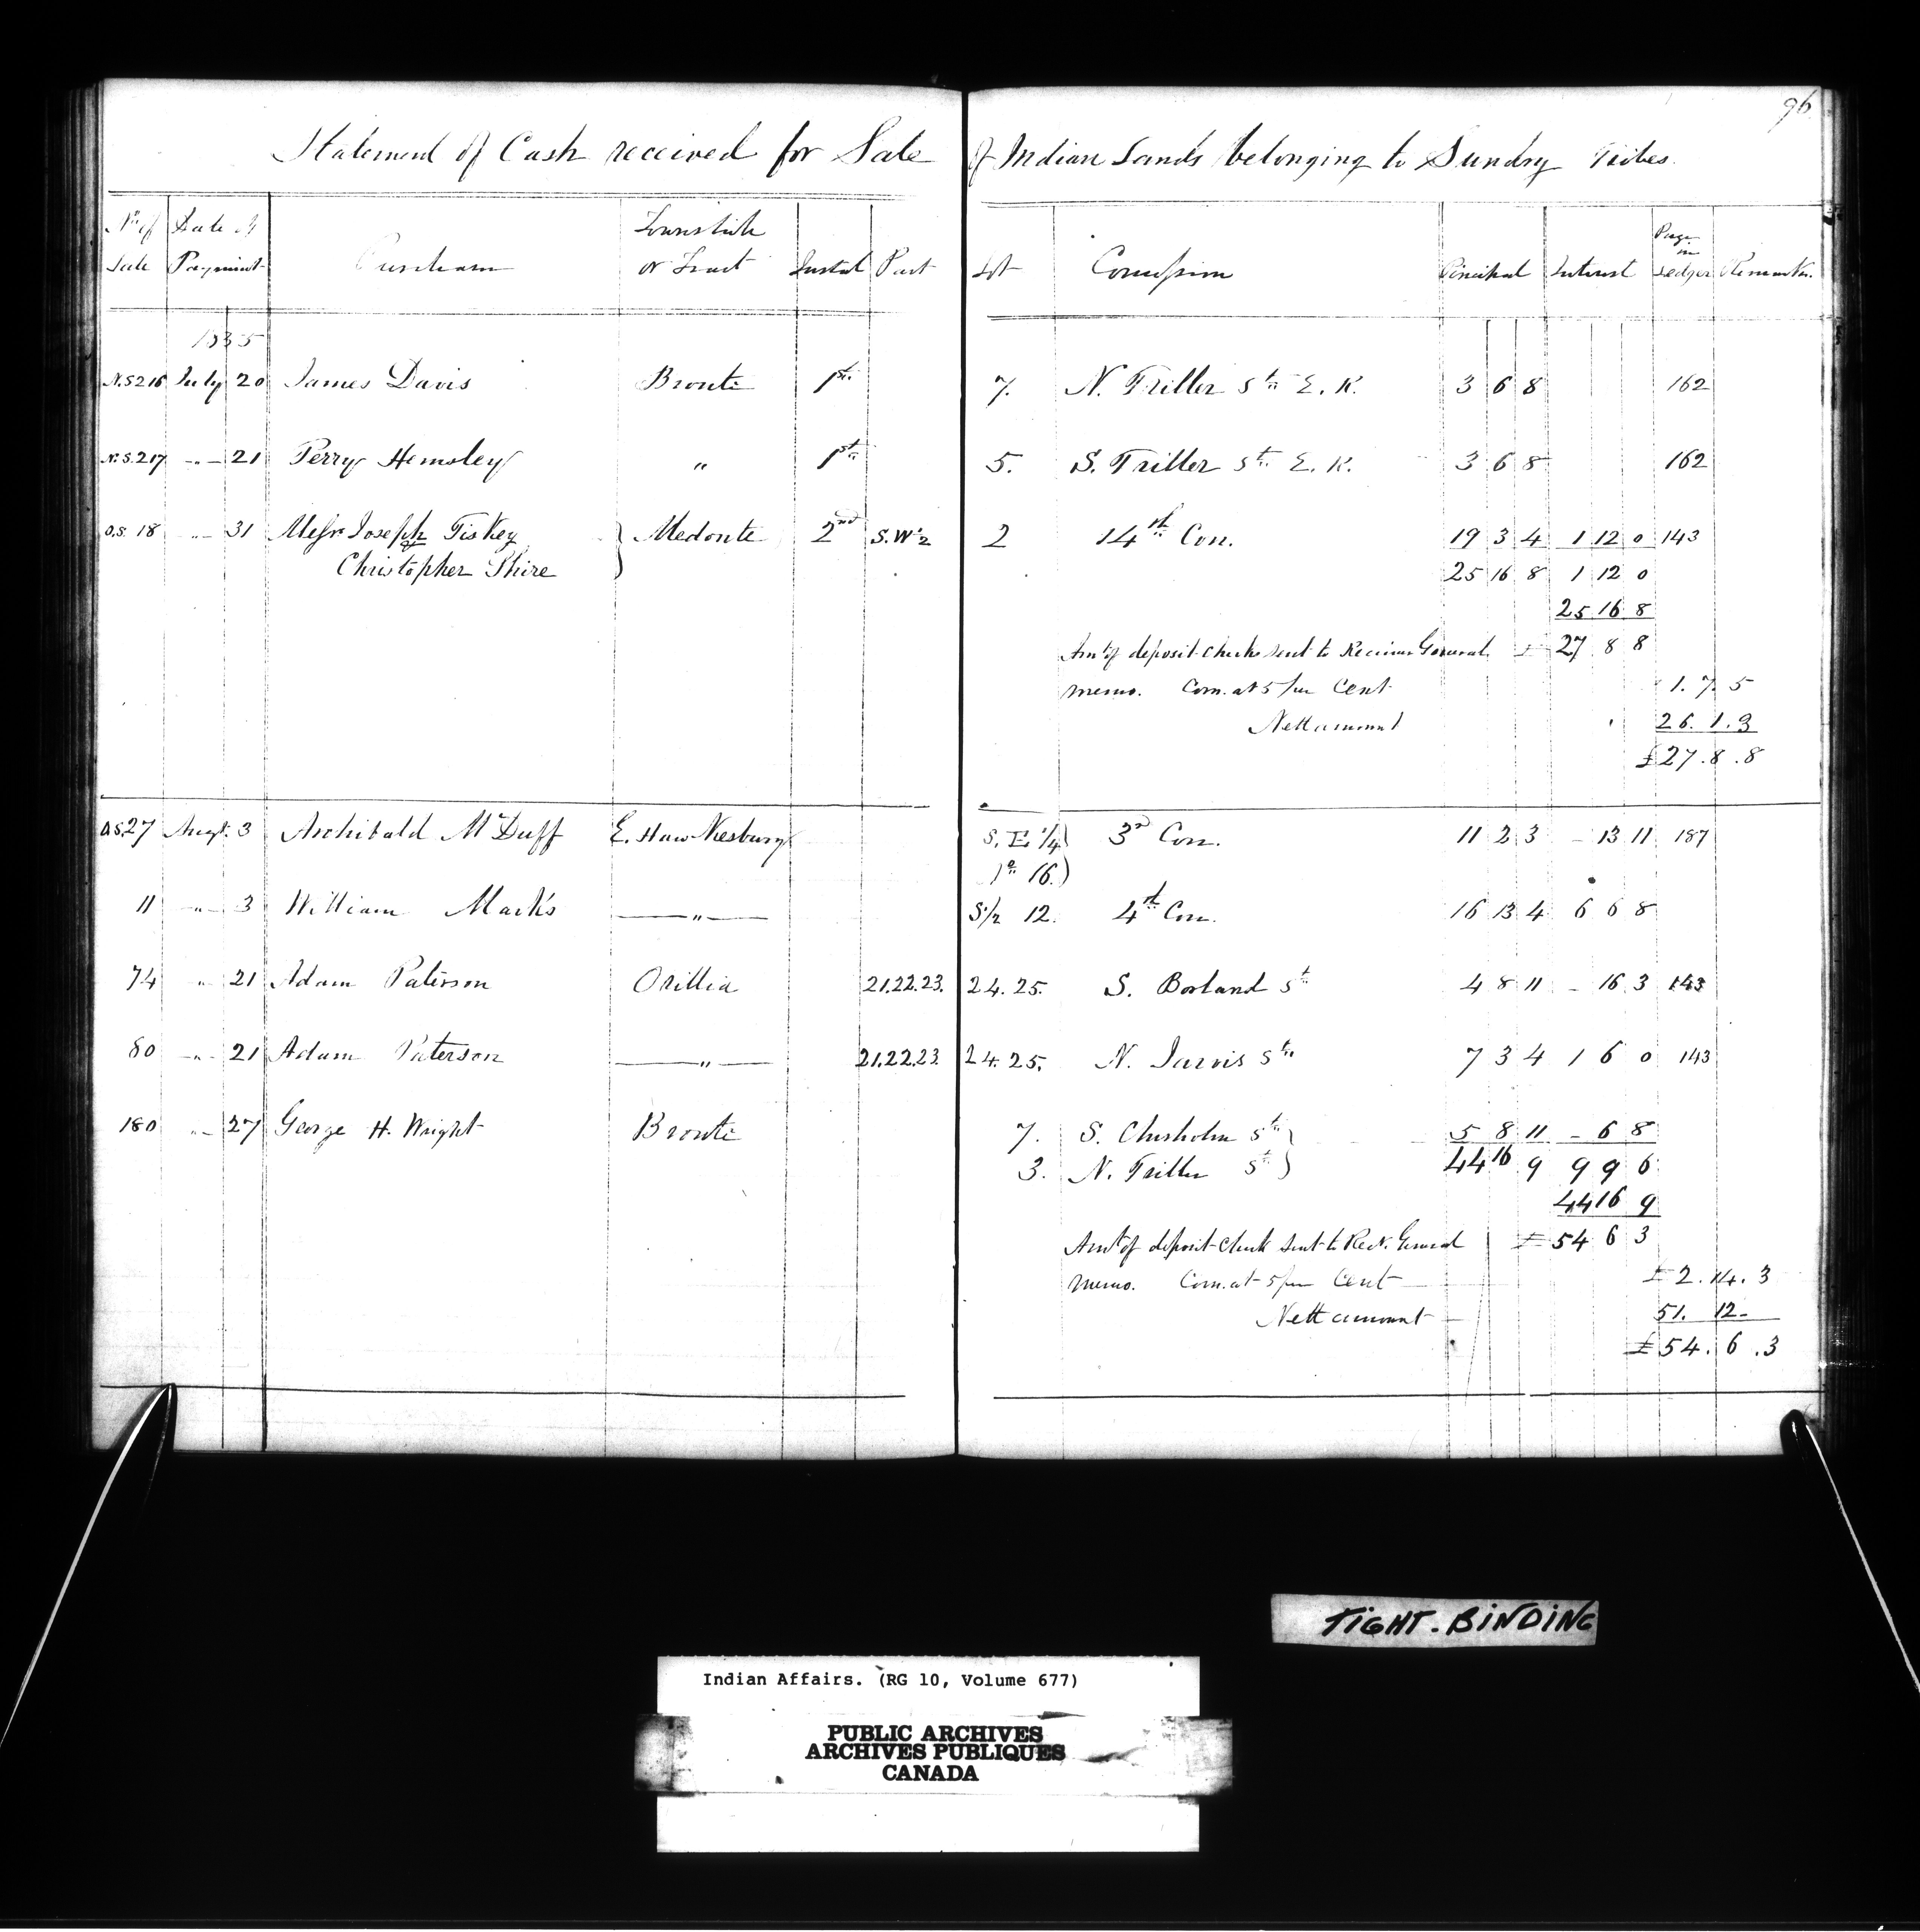 96
Statement of Cash received for Sale of Indian Lands belonging to Sundry Tribes.
No. of Sale | Date of Payment | Purchaser | Township or Tract | Instal | Part | Lot | Concession | Principal | Interest | Page in Ledger | Remarks.
1835
N.S 216 July 20 James Davis Bronte 1st 7. N. Triller St. E. R. 3 6 8 162
N.S. 217 " 21 Perry Hemsley " 1st 5. S. Triller St. E. R. 3 6 8 162
O.S. 18 " 31 Messrs Joseph Fiskey } Medonte 2nd S.W 1/2 2 14th Con. 19 3 4 1 12 0 143
& Christopher Shire 25 16 8 1 12 0
25 16 8
Amt of deposit Check sent to Receiver General £ 27 8 8
memo. Com. at 5 per Cent 1. 7. 5
Nett amount 26. 1. 3
£27. 8. 8
O.S 27 Augt. 3 Archibald McDuff E. Hawkesbury S. E. 1/4 } 3d Con. 11 2 3 - 13 11 187
16. }
11 " 3 William Marks " S 1/2 12. 4th Con. 16 13 4 6 6 8
74 " 21 Adam Paterson Orillia 21.22.23. 24. 25. S. Borland St 4 8 11 - 16 3 143
80 " 21 Adam Paterson " 21.22.23. 24. 25. N. Jarvis St. 7 3 4 1 6 0 143
180 " 27 George H. Wright Bronte 7. S. Chisholm St } 5 8 11 - 6 8
3. N. Triller St } 44 16 9 9 9 6
44 16 9
Amt of deposit Check sent to Recr. General £ 54 6 3
memo. Com. at 5 per Cent £ 2. 14. 3
Nett amount 51. 12 -
£ 54. 6. 3
TIGHT. BINDING
Indian Affairs. (RG 10, Volume 677)
PUBLIC ARCHIVES
ARCHIVES PUBLIQUES
CANADA